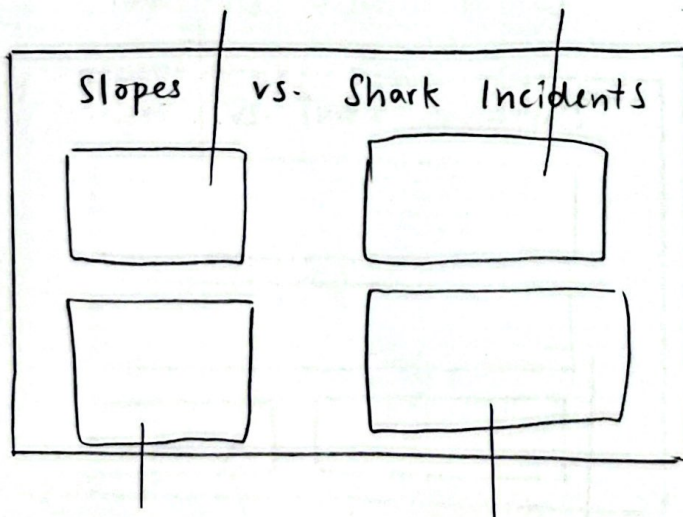 Slopes vs. Shark Incidents